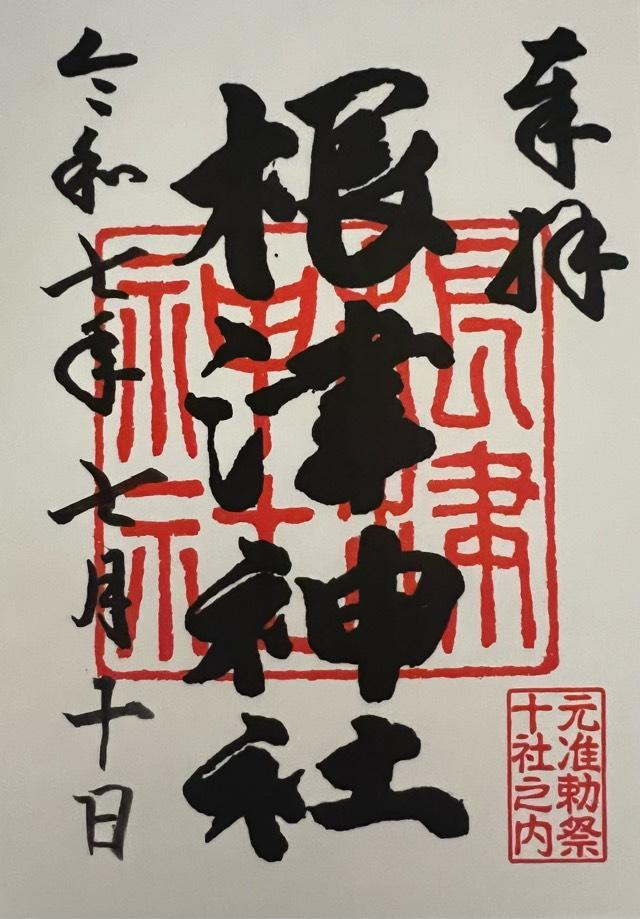 奉拝
根津神社
令和七年七月十日
根津
神社
元准勅祭
十社之内